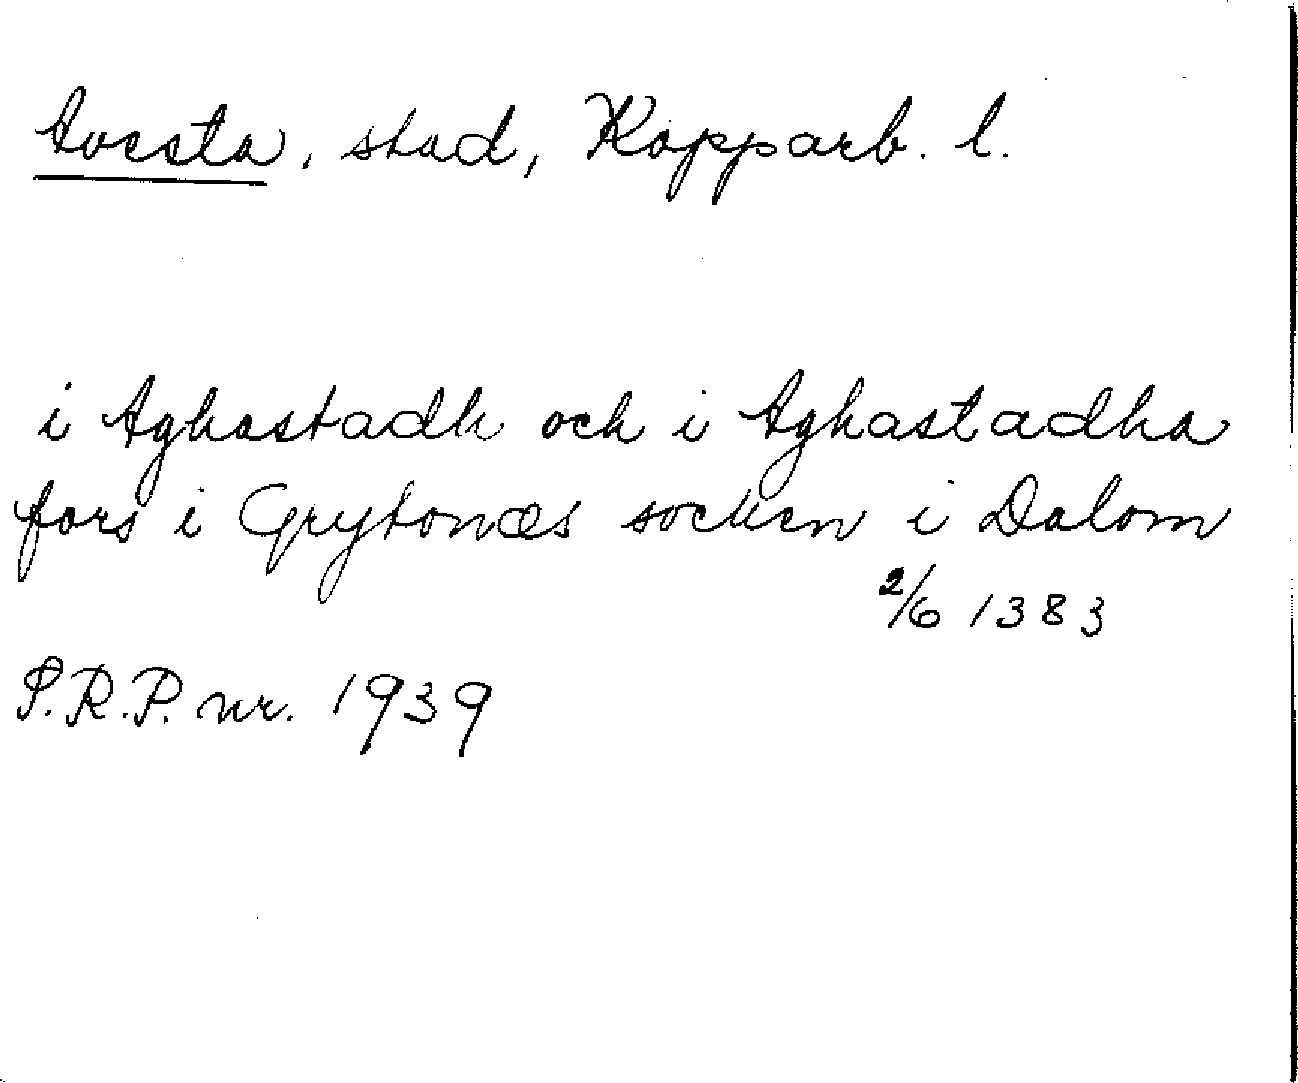 Avesta, stad, Kopparb. l.
i Aghastadh och i Aghastadha
fors i Grytonæs socken i Dalom
2/6 1383
S.R.P. nr. 1939